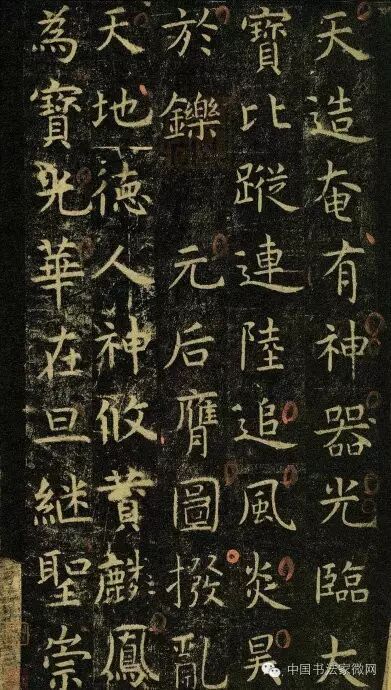 天造奄有神器光臨大
寶比蹤連陸追風炎昊
於鑠 元后膺圖撥亂
天地德人神攸賛麟鳳
為寶光華在旦継聖崇
中国书法家微网